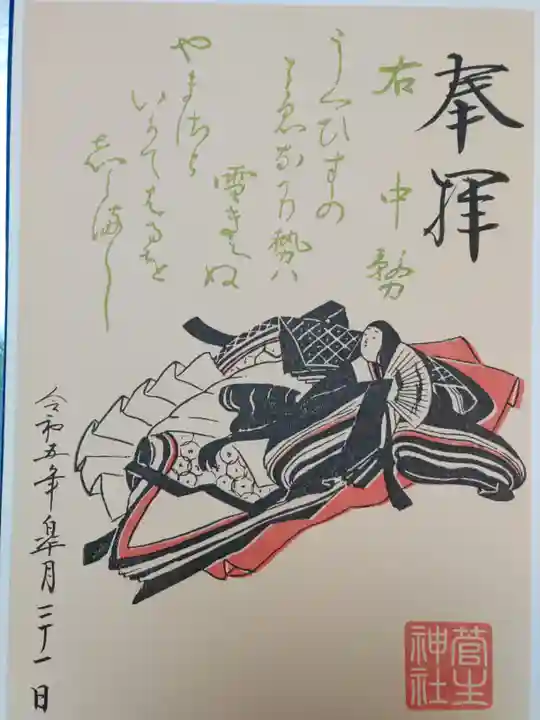 奉拝
右 中務
うくひすの
こゑなかり勢八
雪きえぬ
やまさと
いかてはるを
志らまし
令和五年皐月二十一日
菅生
神社